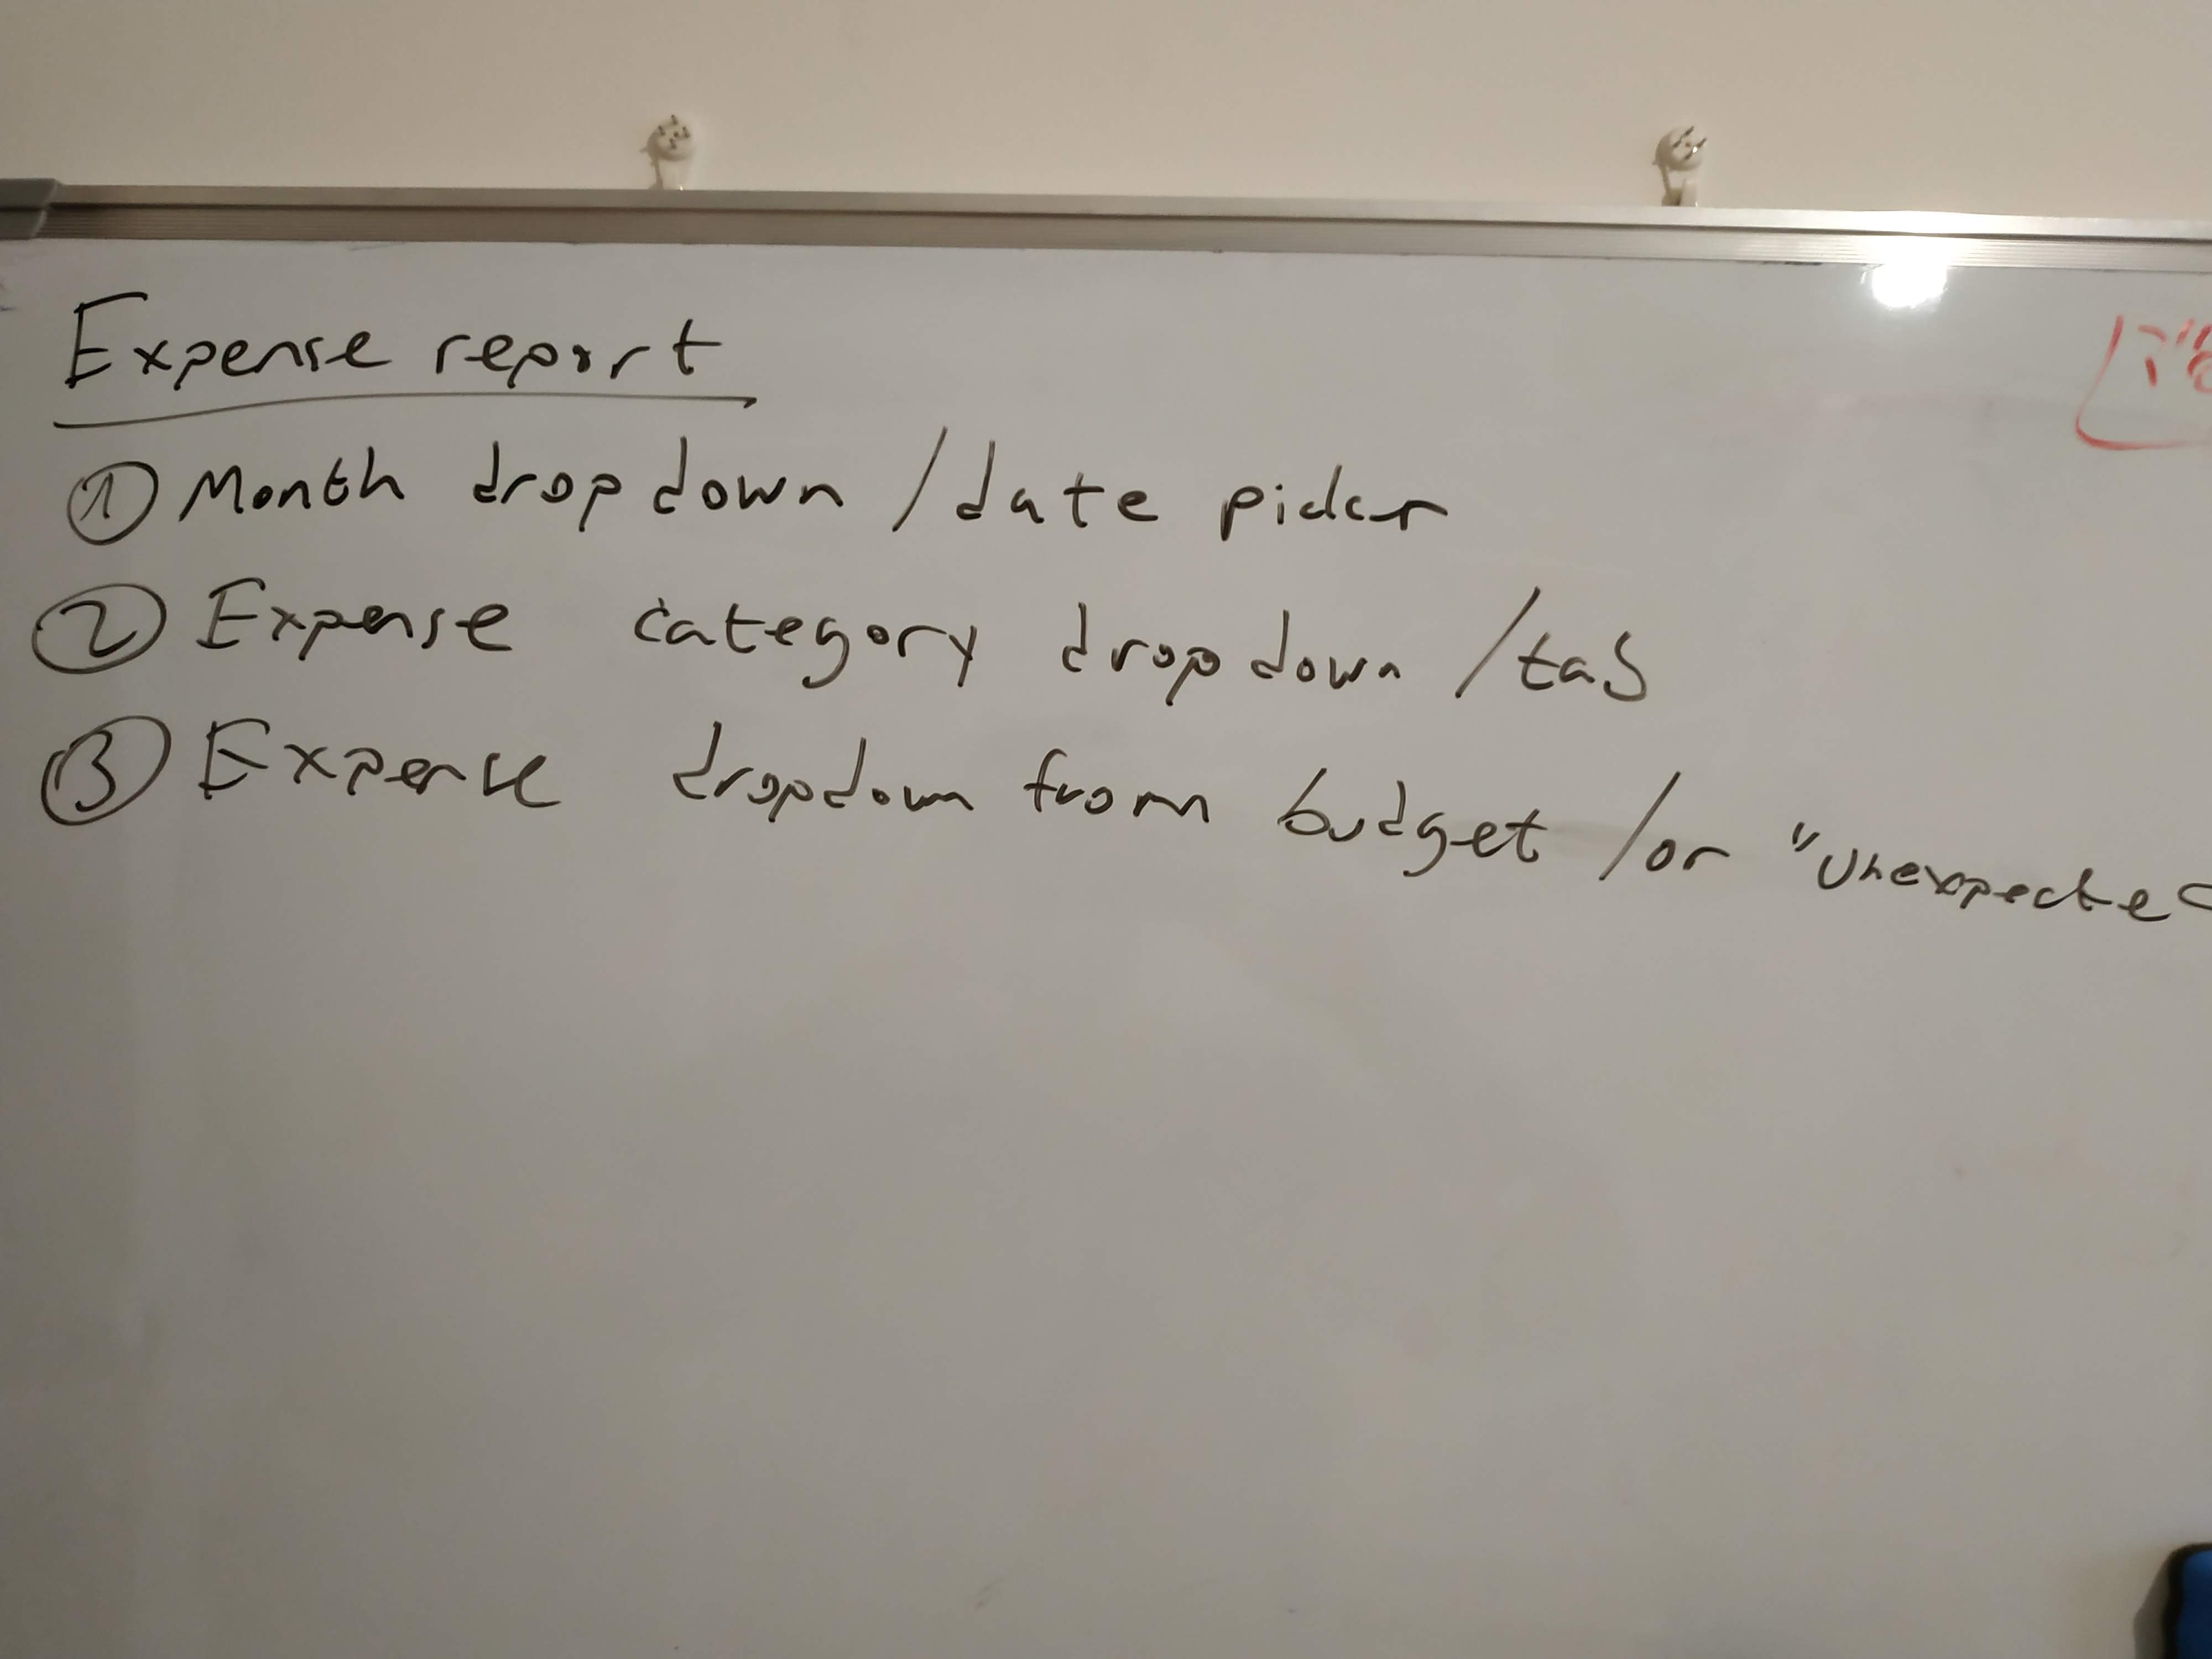 Expense report
① Month dropdown / date picker
② Expense category dropdown / tag
③ Expense dropdown from budget / or "Unexpected